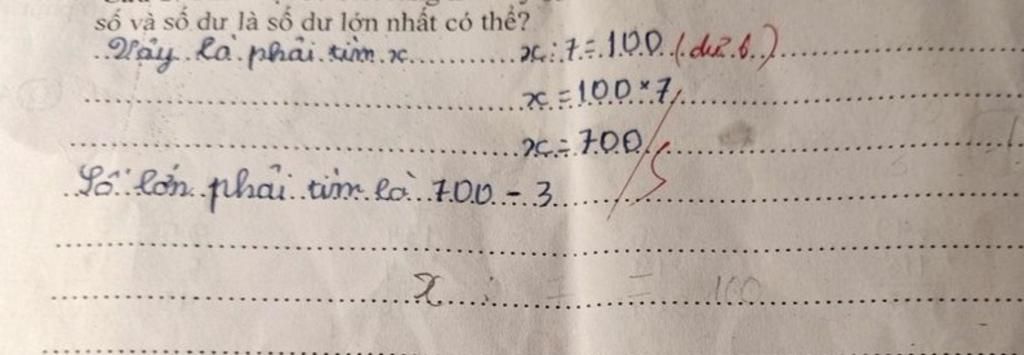 số và số dư là số dư lớn nhất có thể?
Vậy là phải tìm x x : 7 = 100 (dư 6)
x = 100 × 7
x = 700 S
Số lớn phải tìm là 700 - 3
x : = = 100